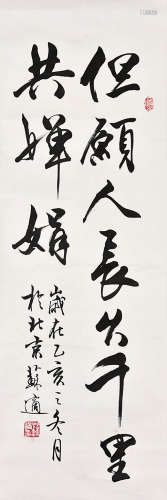 但願人長久千里
共嬋娟
歲在乙亥之冬月
於北京蘇適